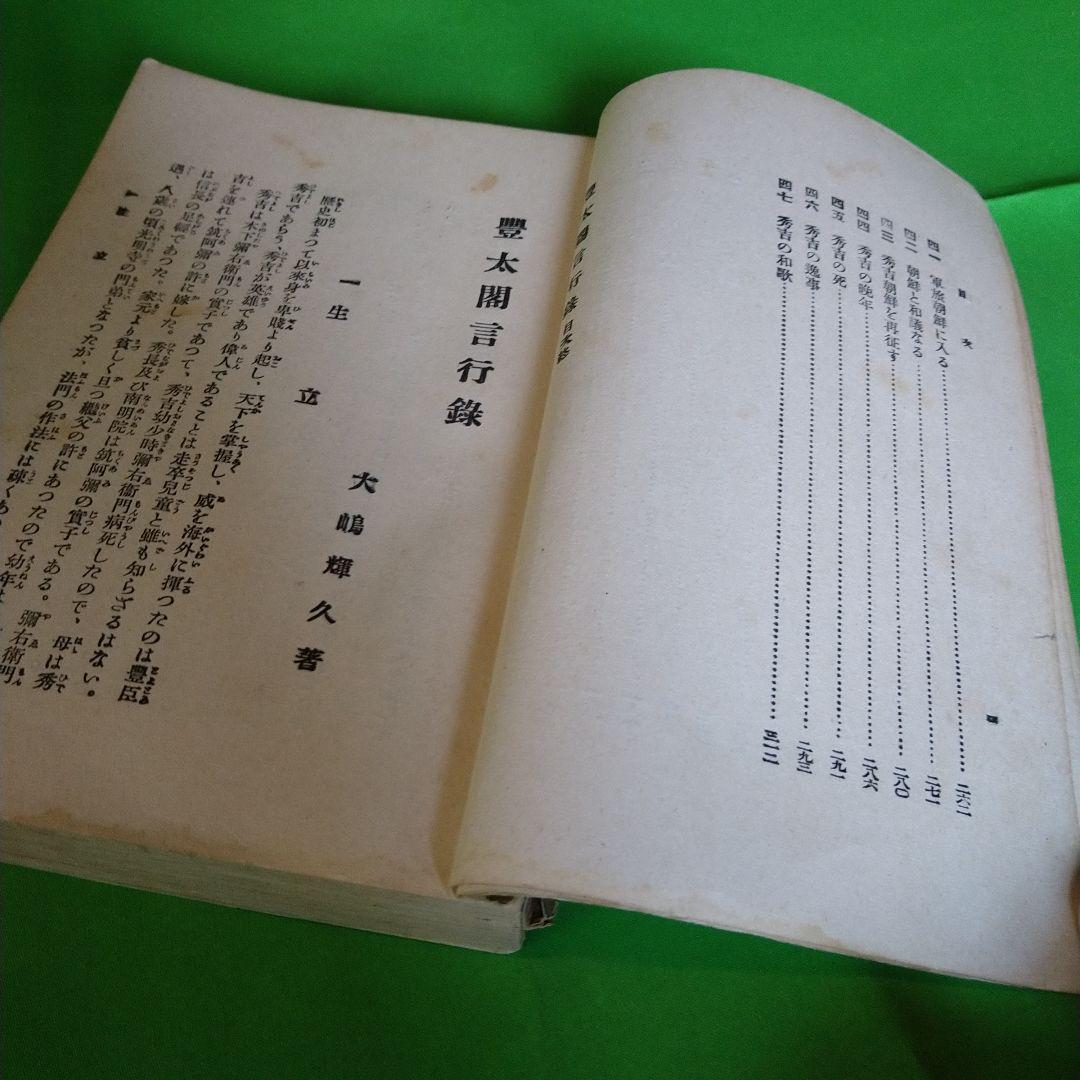 目次
四
四一 軍旅朝鮮に入る……二六二
四二 朝鮮と和議なる……二七一
四三 秀吉朝鮮を再征す……二八〇
四四 秀吉の晩年……二八六
四五 秀吉の死……二九一
四六 秀吉の逸事……二九三
四七 秀吉の和歌……三一二
豐太閤言行錄目次終
豐太閤言行錄
大嶋輝久著
一 生立
歷史初まつて以來身を卑賤より起し、天下を掌握し、威を海外に揮つたのは豐臣
秀吉であらう、秀吉が英雄であり偉人であることは走卒兒童と雖も知らざるはない。
秀吉は木下彌右衛門の實子であつて、秀吉幼少時彌右衛門病死したので、母は秀
吉を連れて筑阿彌の許に嫁した。秀長及び南明院は筑阿彌の實子である。彌右衛門
は信長の足輕であつた。家元より貧しく且つ繼父の許にあつたので幼年
遇、八歲の頃光明寺の門弟となつたが、法門の作法には疎く
生立